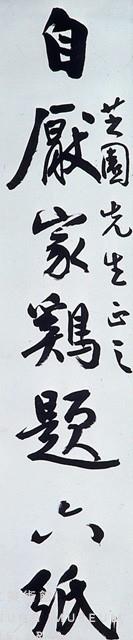 自厭家鷄題六紙
芝園先生正之